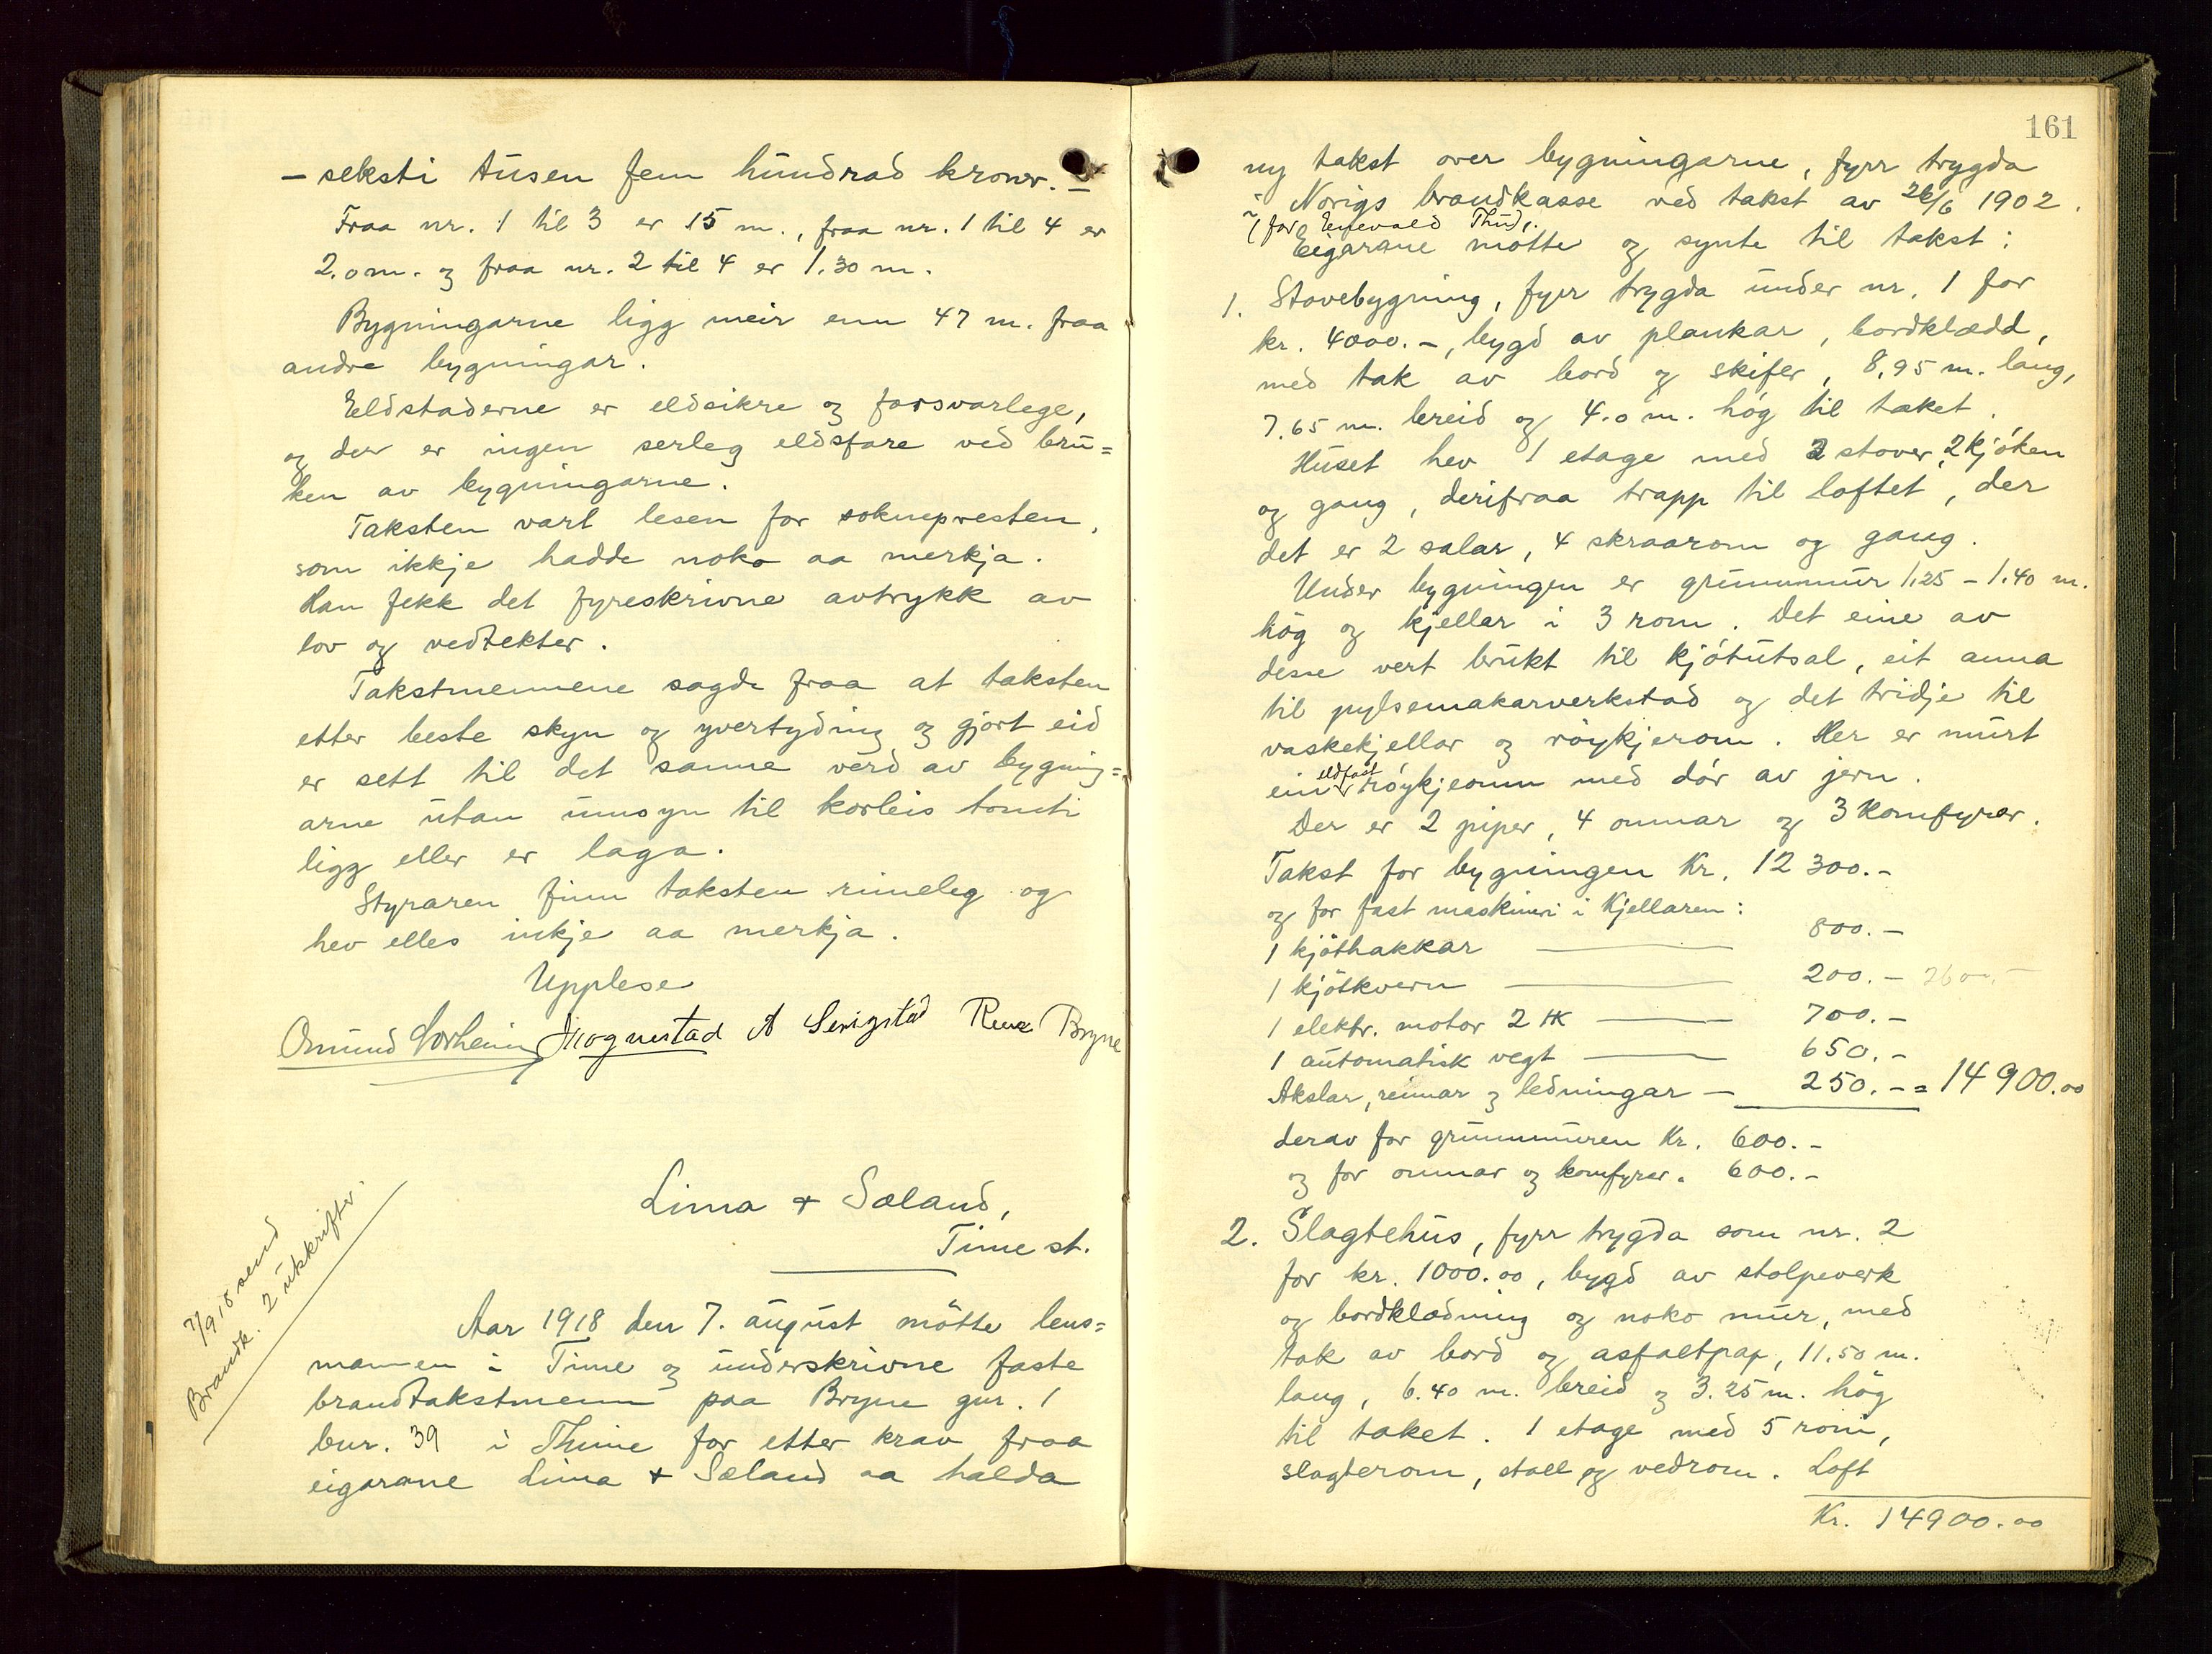 - seksti tusen fem hundrad kronor. -
Fraa nr. 1 til 3 er 15 m., fraa nr. 1 til 4 er
2.0 m. og fraa nr. 2 til 4 er 1.30 m.
Bygningarne ligg meir enn 47 m. fraa
andre bygningar.
Eldstaderne er eldsikre og forsvarlege,
og der er ingen serleg eldsfare ved bru=
ken av bygningarne.
Taksten vart lesen for soknepresten,
som ikkje hadde noko aa merkja.
Han fekk det fyreskrivne avtrykk av
lov og vedtekter.
Takstmennene sagde fraa at taksten
etter beste skyn og yvertyding og gjort eid
er sett til det sanne verd av bygning=
arne utan umsyn til korleis tomti
ligg eller er laga.
Styraren finn taksten rimeleg og
hev elles inkje aa merkja.
Upplese
Osmund Norheim Mognestad A Serigstad Rene Bryne
Lima + Sæland,
Time st.
7/9 18 send
Brandk. 2 utskrifter.
Aar 1918 den 7. august mötte lens=
mannen i Time og underskrivne faste
brandtakstmenn paa Bryne gnr. 1
bnr. 39 i Thime for etter krav fraa
eigarane Lima + Sæland aa halda
161
ny takst over bygningarne, fyrr trygda
i Norigs brandkasse ved takst av 26/6 1902.
(for Enevald Thu).
Eigarane mötte og synte til takst:
1. Stovebygning, fyrr trygda under nr. 1 for
kr. 4000.-, bygd av plankar, bordklædd,
med tak av bord og skifer, 8.95 m. lang,
7.65 m. breid og 4.0 m. hög til taket.
Huset hev 1 etage med 2 stover, 2 kjöken
og gang, derifraa trapp til loftet, der
det er 2 salar, 4 skraarom og gang.
Under bygningen er grunnmur 1.25 - 1.40 m.
hög og kjellar i 3 rom. Det eine av
desse vert brukt til kjötutsal, eit anna
til pylsemakarverkstad og det tridje til
vaskekjellar og röykjerom. Her er murt
ein eldfast röykjeomn med dör av jern.
Der er 2 piper, 4 omnar og 3 komfyrer.
Takst for bygningen Kr. 12 300.-
og for fast maskineri i Kjellaren:
1 kjöthakkar — 800.-
1 kjötkvern — 200.- 2600.-
1 elektr. motor 2 HK — 700.-
1 automatisk vegt — 650.-
Akslar, reimar og ledningar — 250.- = 14 900.00
derav for grunnmuren Kr. 600.-
og for omnar og komfyrer " 600.-
2. Slagtehus, fyrr trygda som nr. 2
for kr. 1000.00, bygd av stolpeverk
og bordklædning og noko mur, med
tak av bord og asfaltpap, 11.50 m.
lang, 6.40 m. breid og 3.25 m. hög
til taket. 1 etage med 5 rom,
slagterom, stall og vedrom. Loft
Kr. 14900.00